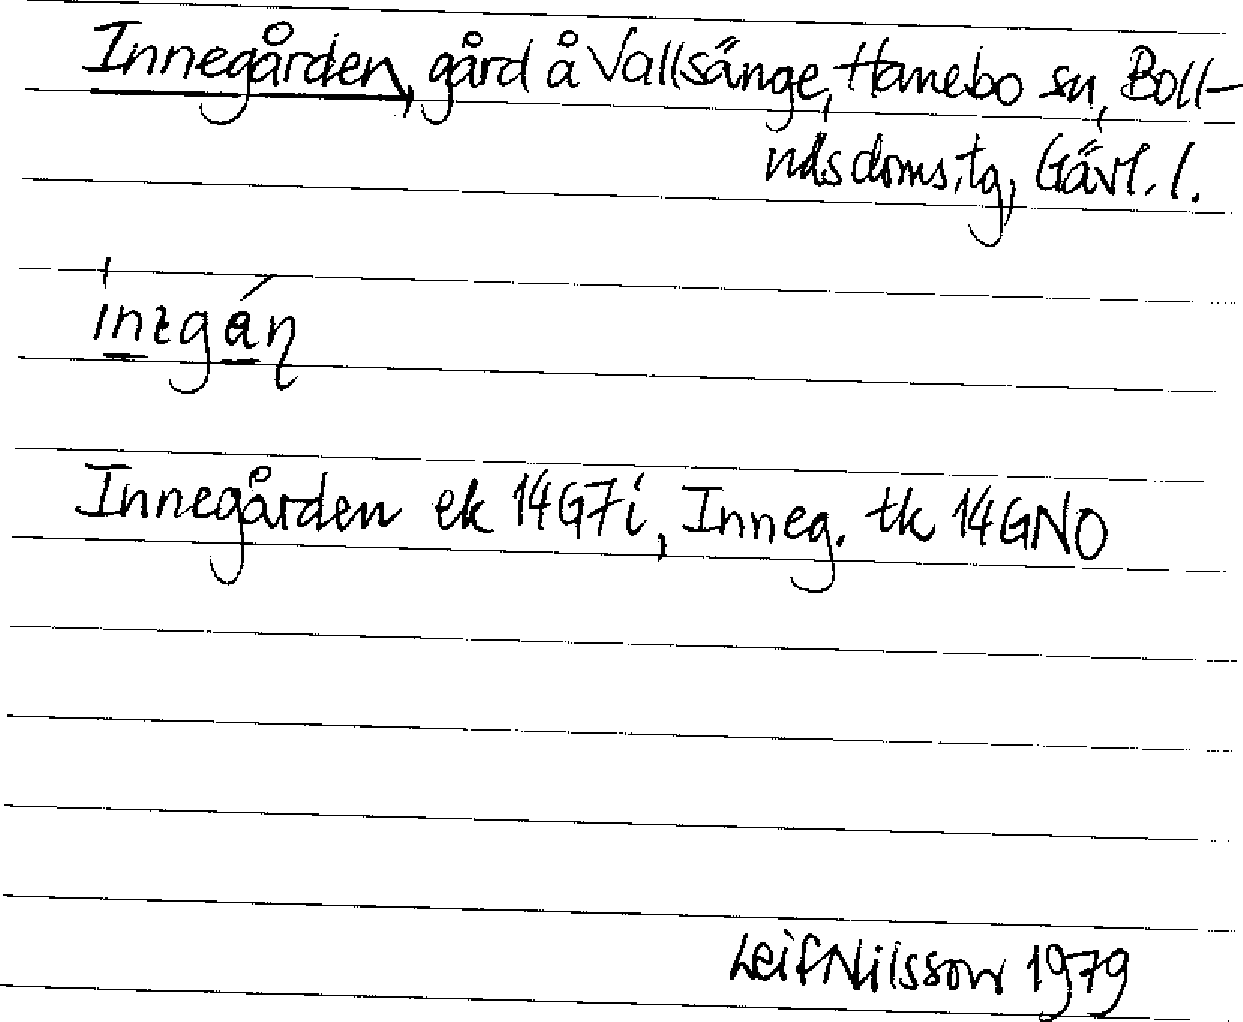 Innegården, gård å Vallsänge, Hanebo sn, Boll-
näs doms.tg, Gävl. l.
Innegården ek 14G7i, Inneg. tk 14GNO
Leif Nilsson 1979